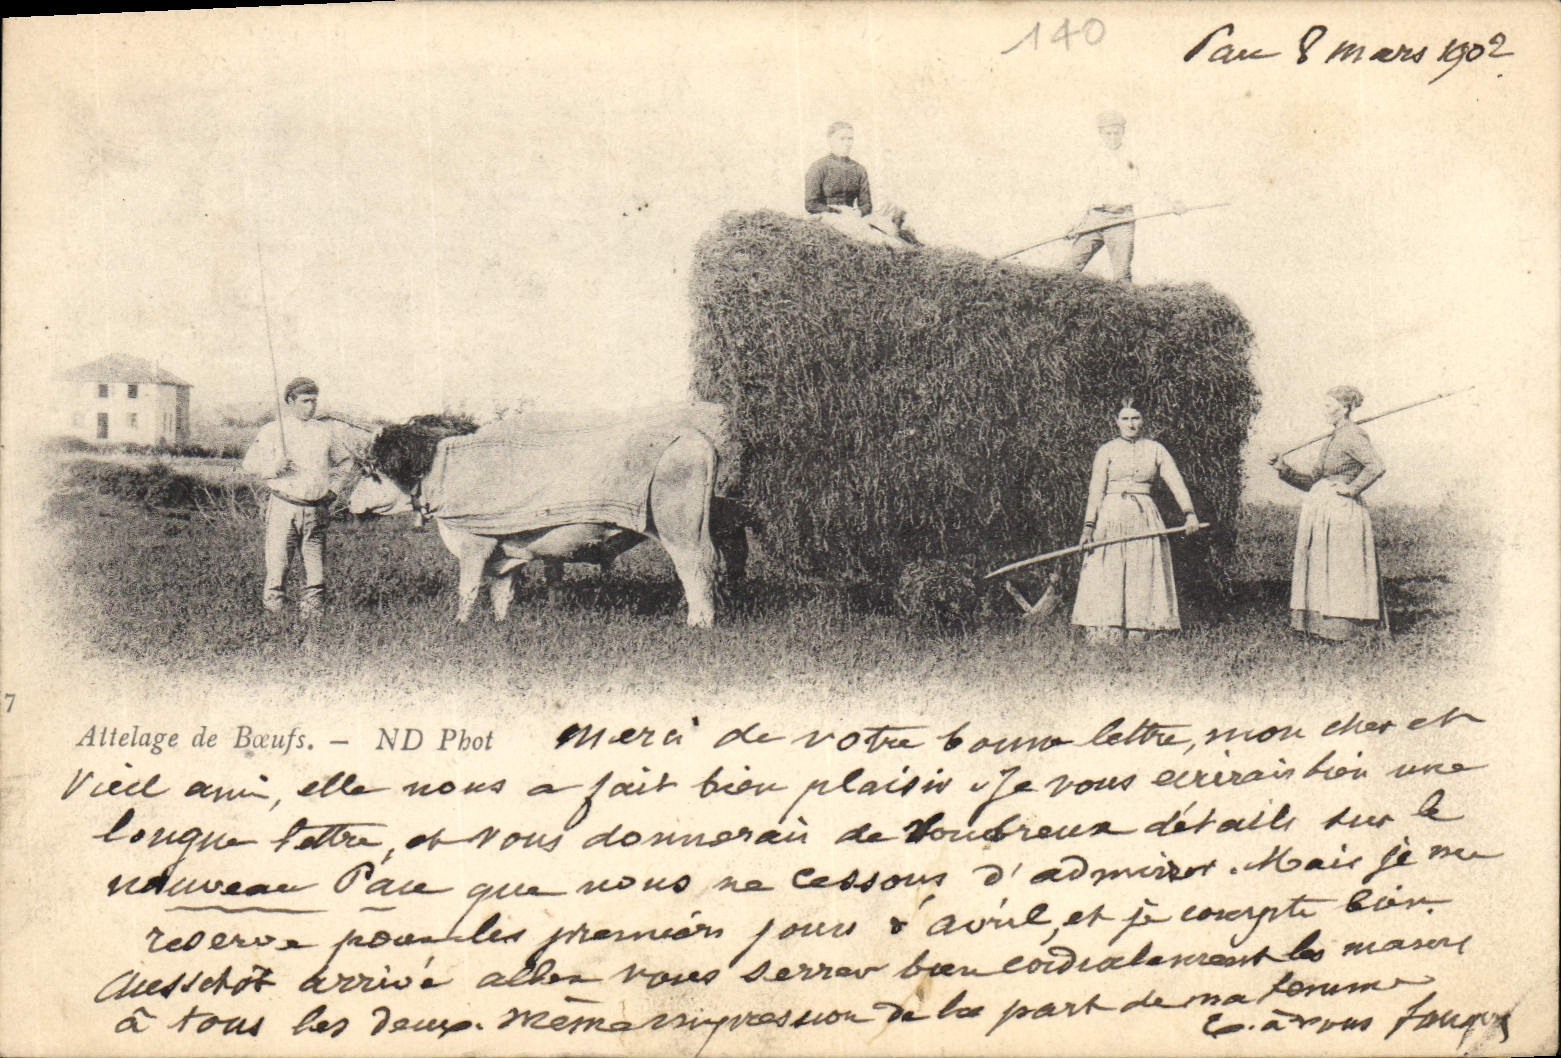 140
Pau 8 mars 1902
7
Attelage de Bœufs. – ND Phot
Merci de votre bonne lettre, mon cher et
vieil ami, elle nous a fait bien plaisir. Je vous écrirais bien une
longue lettre, et vous donnerais de nombreux détails sur le
nouveau Pau que nous ne cessons d'admirer. Mais je me
réserve pour les premiers jours d'avril, et je compte bien
aussitôt arrivé aller vous serrer bien cordialement les mains
à tous les deux. Même impression de la part de ma femme
à vous